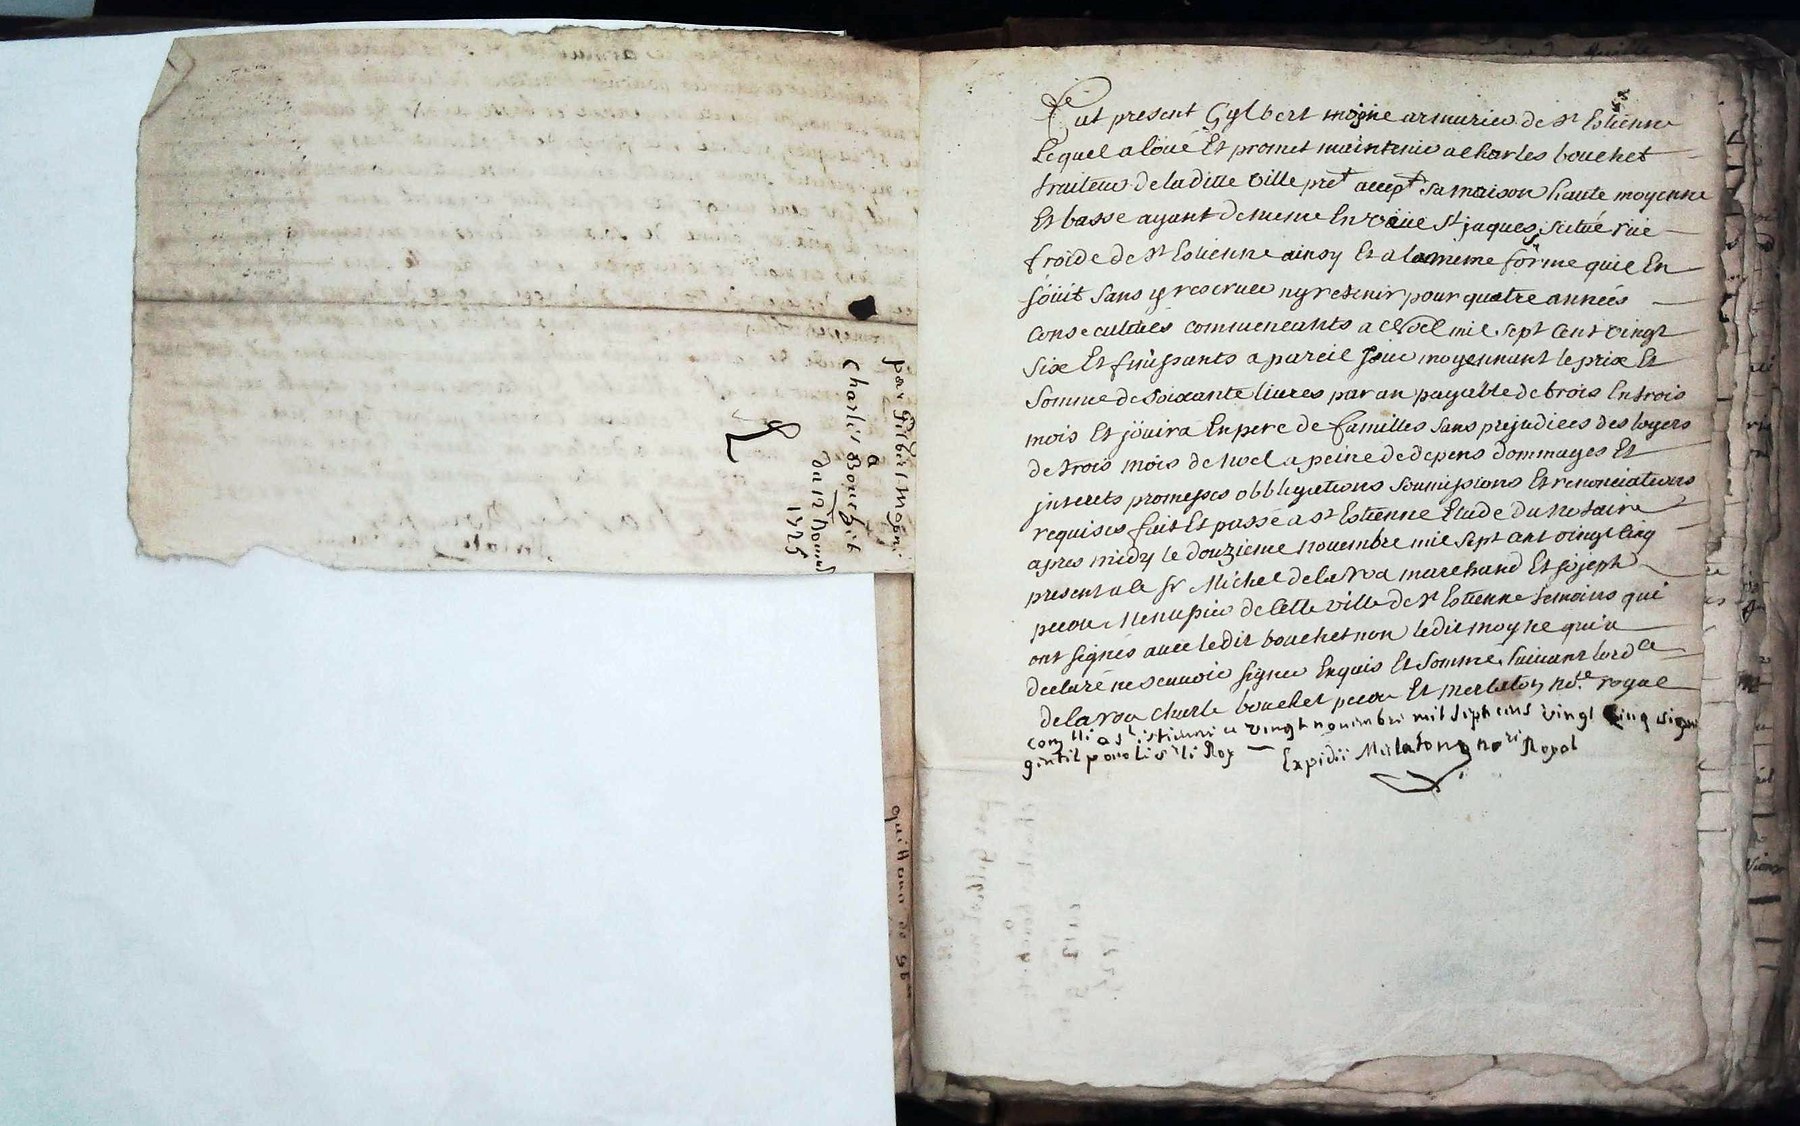 par Gilbert Mogne
a
Charles Bouchet
du 12 novemb
1725
quittance de
Fut present Gylbert mojne armurier de st Estienne
Lequel a loüé Et promet maintenir a Charles bouchet
traiteur de laditte ville pret accept sa maison haute moyenne
Et basse ayant de meme En St jaques, scitué rüe
froide de st Estienne ainsy Et a la meme forme quil En
joüit sans y reserver ny retenir pour quatre années
consecutives commencants a Noel mil sept cent vingt
six Et finissants a pareil jour moyennant le prix Et
somme de soixante livres par an payable de trois En trois
mois Et joüira En pere de familles sans prejudices des loyers
de trois mois de noel a peine de depens dommages Et
interets promesses obbligations soumissions Et renonciations
requises fait Et passé a st Estienne Etude du Notaire
apres midy le douzieme novembre mil sept cent vingt cinq
present a ce sr Michel delaroa marchand Et joseph
pecou Menusier de cette ville de st Estienne temoins qui
ont signés avec ledit bouchet non ledit moyne qui a
declaré ne scavoir signer Enquis Et sommé suivant lord ce
delaroa charle bouchet pecou Et merlaton no.re royal
con lle a st istienne ce vingt novembre mil sept cens vingt cinq signe
gentil pour le Roy — Expedié Merlaton nore Royal